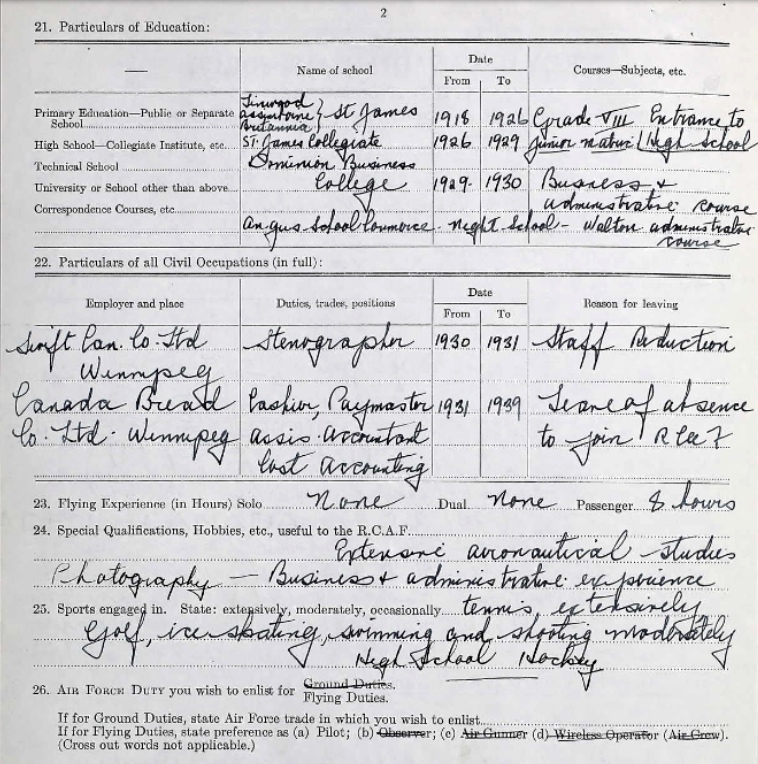 2
21. Particulars of Education:
— Name of school Date Courses—Subjects, etc.
From To
Linwood
Primary Education—Public or Separate School Assiniboine } St James 1918 1926 Grade VIII Entrance to
Britannia
High School—Collegiate Institute, etc. St. James Collegiate 1926 1929 Junior matric / High School
Technical School Dominion Business
University or School other than above College 1929- 1930 Business &
Correspondence Courses, etc. administrative course
Angus School Commerce - Night School - Walton administrative
course
22. Particulars of all Civil Occupations (in full):
Employer and place Duties, trades, positions Date Reason for leaving
From To
Swift Can. Co. Ltd Stenographer 1930 1931 Staff Reduction
Winnipeg
Canada Bread Cashier, Paymaster 1931 1939 Leave of absence
Co. Ltd. Winnipeg assis. Accountant to join RCAF
Cost Accounting
23. Flying Experience (in Hours) Solo None Dual None Passenger 8 hours
24. Special Qualifications, Hobbies, etc., useful to the R.C.A.F.
Extensive aeronautical studies
Photography — Business & administrative experience
25. Sports engaged in. State: extensively, moderately, occasionally tennis, extensively
Golf, ice skating, swimming and shooting moderately
High School Hockey
26. AIR FORCE DUTY you wish to enlist for Ground Duties.
Flying Duties.
If for Ground Duties, state Air Force trade in which you wish to enlist
If for Flying Duties, state preference as (a) Pilot; (b) Observer; (c) Air Gunner (d) Wireless Operator (Air Crew).
(Cross out words not applicable.)